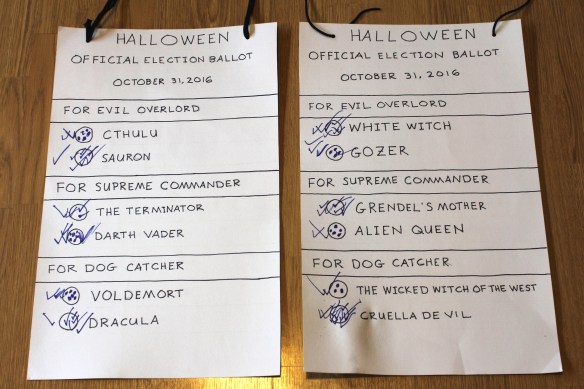 HALLOWEEN
OFFICIAL ELECTION BALLOT
OCTOBER 31, 2016
FOR EVIL OVERLORD
CTHULU
SAURON
FOR SUPREME COMMANDER
THE TERMINATOR
DARTH VADER
FOR DOG CATCHER
VOLDEMORT
DRACULA
HALLOWEEN
OFFICIAL ELECTION BALLOT
OCTOBER 31, 2016
FOR EVIL OVERLORD
WHITE WITCH
GOZER
FOR SUPREME COMMANDER
GRENDEL'S MOTHER
ALIEN QUEEN
FOR DOG CATCHER
THE WICKED WITCH OF THE WEST
CRUELLA DE VIL